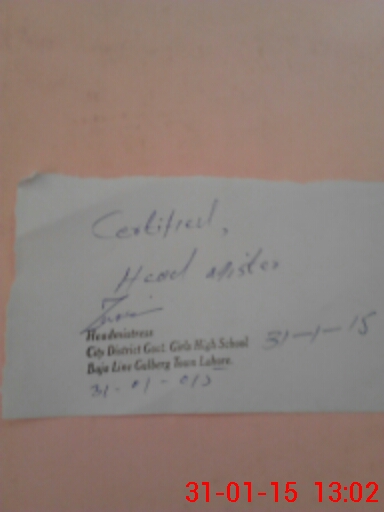 Certified,
Head Mister
Headmistress
City District Govt. Girls High School
31-1-15
Baja Line Gulberg Town Lahore.
31-01-015
31-01-15 13:02